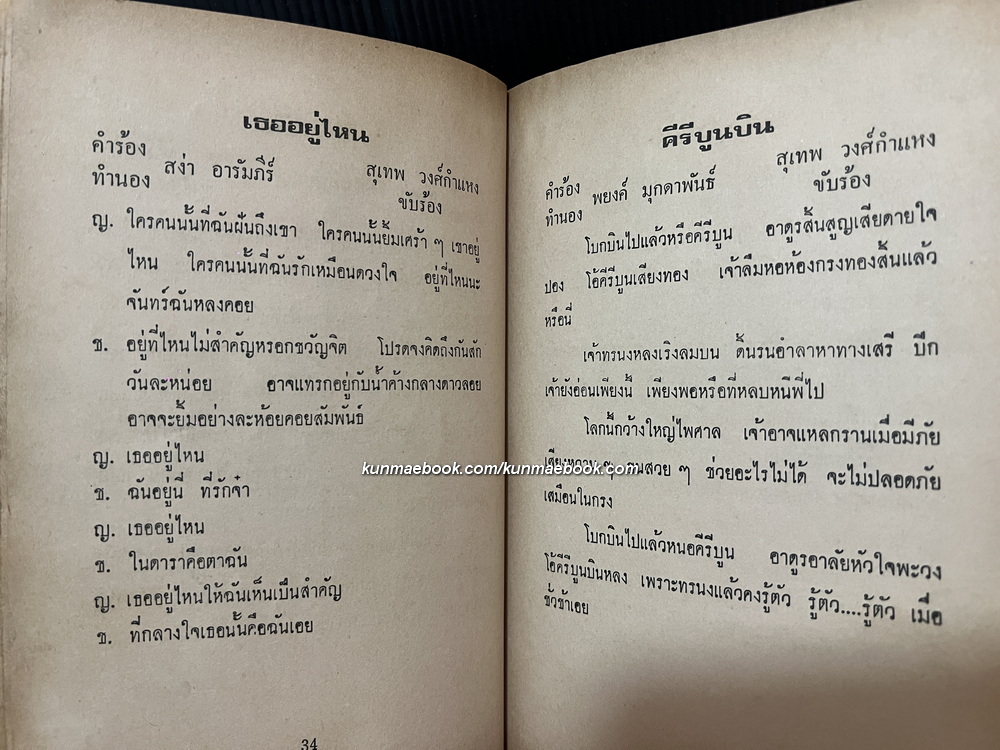 เธออยู่ไหน
คำร้อง
ทำนอง สง่า อารัมภีร์ สุเทพ วงศ์กำแหง
ขับร้อง
ญ. ใครคนนั้นที่ฉันฝันถึงเขา ใครคนนั้นยิ้มเศร้า ๆ เขาอยู่
ไหน ใครคนนั้นที่ฉันรักเหมือนดวงใจ อยู่ที่ไหนนะ
จันทร์ฉันหลงคอย
ช. อยู่ที่ไหนไม่สำคัญหรอกขวัญจิต โปรดจงคิดถึงกันสัก
วันละหน่อย อาจแทรกอยู่กับน้ำค้างกลางดาวลอย
อาจจะยิ้มอย่างละห้อยคอยสัมพันธ์
ญ. เธออยู่ไหน
ช. ฉันอยู่นี่ ที่รักจ๋า
ญ. เธออยู่ไหน
ช. ในดาราคือตาฉัน
ญ. เธออยู่ไหนให้ฉันเห็นเป็นสำคัญ
ช. ที่กลางใจเธอนั้นคือฉันเอย
34
คีรีบูนบิน
คำร้อง
ทำนอง พยงค์ มุกดาพันธ์ สุเทพ วงศ์กำแหง
ขับร้อง
โบกบินไปแล้วหรือคีรีบูน อาดูรสิ้นสูญเสียดายใจ
ปอง โอ้คีรีบูนเสียงทอง เจ้าลืมหอห้องกรงทองสิ้นแล้ว
หรือนี่
เจ้าทรนงหลงเริงลมบน ดิ้นรนอำลาหาทางเสรี ปีก
เจ้ายังอ่อนเพียงนี้ เพียงพอหรือที่หลบหนีพี่ไป
โลกนี้กว้างใหญ่ไพศาล เจ้าอาจแหลกรานเมื่อมีภัย
เสียงหวาน ๆ สวย ๆ ช่วยอะไรไม่ได้ จะไม่ปลอดภัย
เสมือนในกรง
โบกบินไปแล้วหนอคีรีบูน อาดูรอาลัยหัวใจพะวง
โอ้คีรีบูนบินหลง เพราะทรนงแล้วคงรู้ตัว รู้ตัว....รู้ตัว เมื่อ
ชั่วช้าเอย
kunmaebook.com/kunmaebook.com